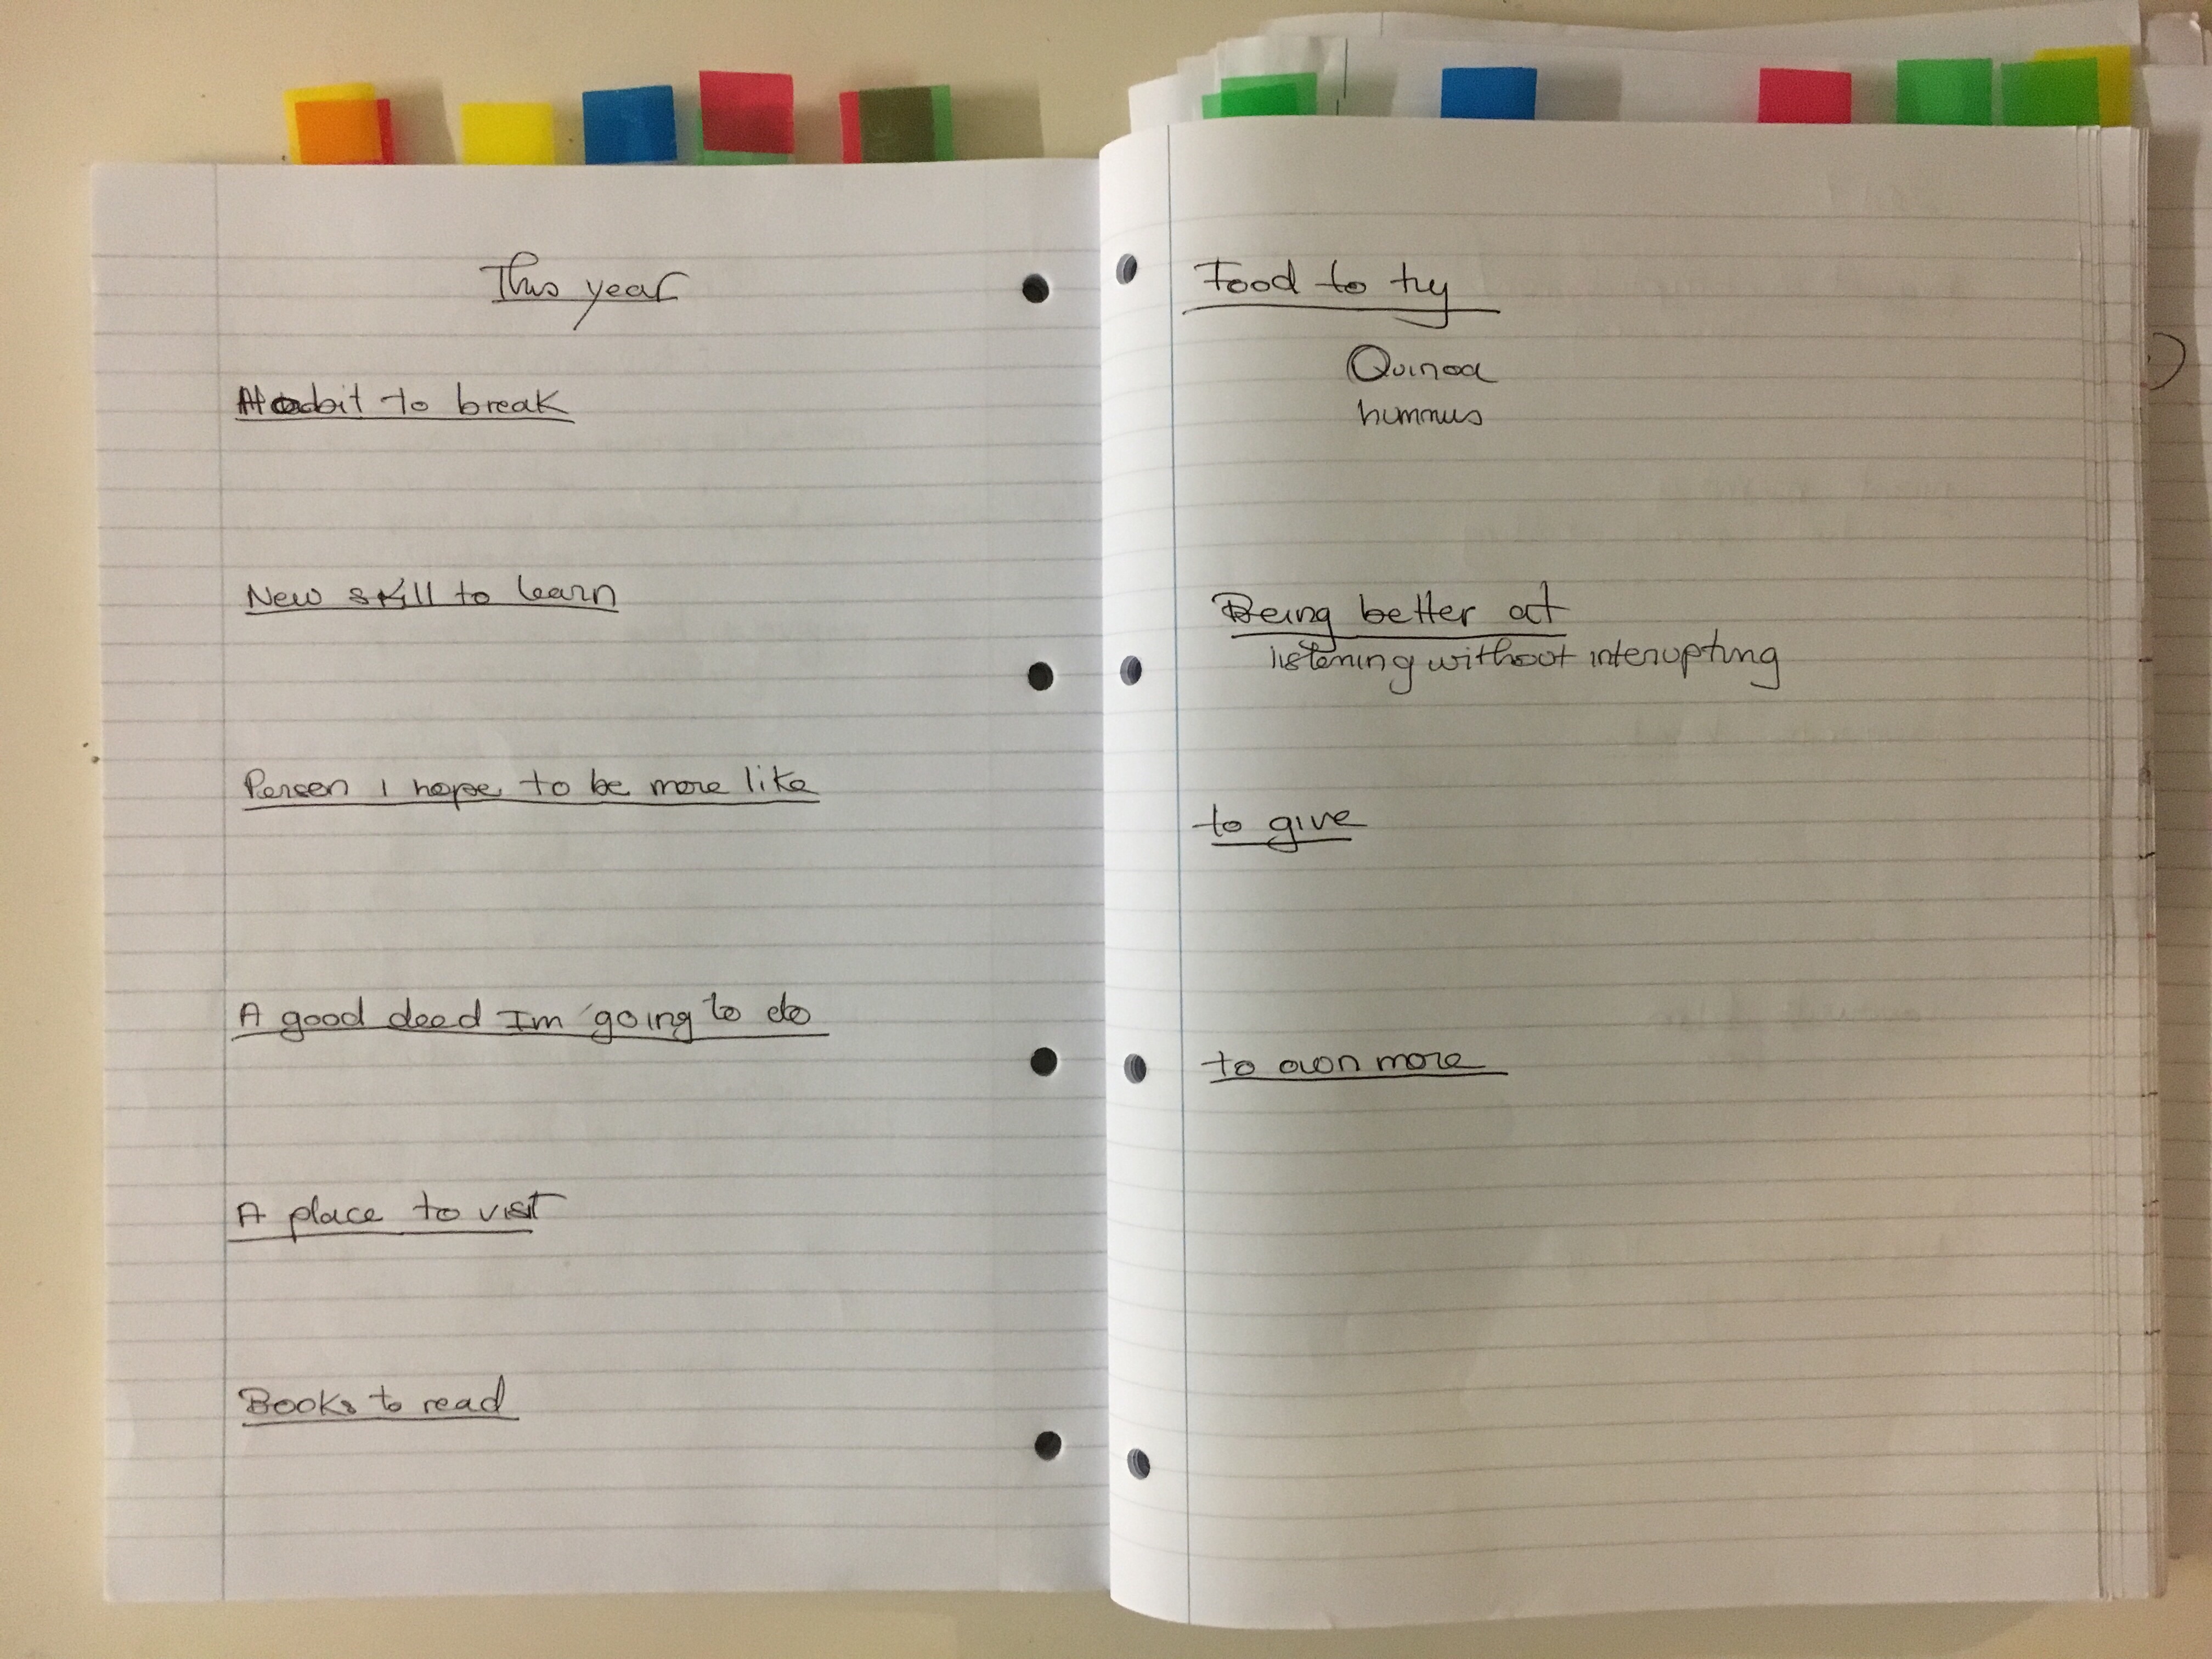 This year
A habit to break
New skill to learn
Person I hope to be more like
A good deed Im going to do
A place to visit
Books to read
Food to try
Quinoa
hummus
Being better at
listening without interupting
to give
to own more